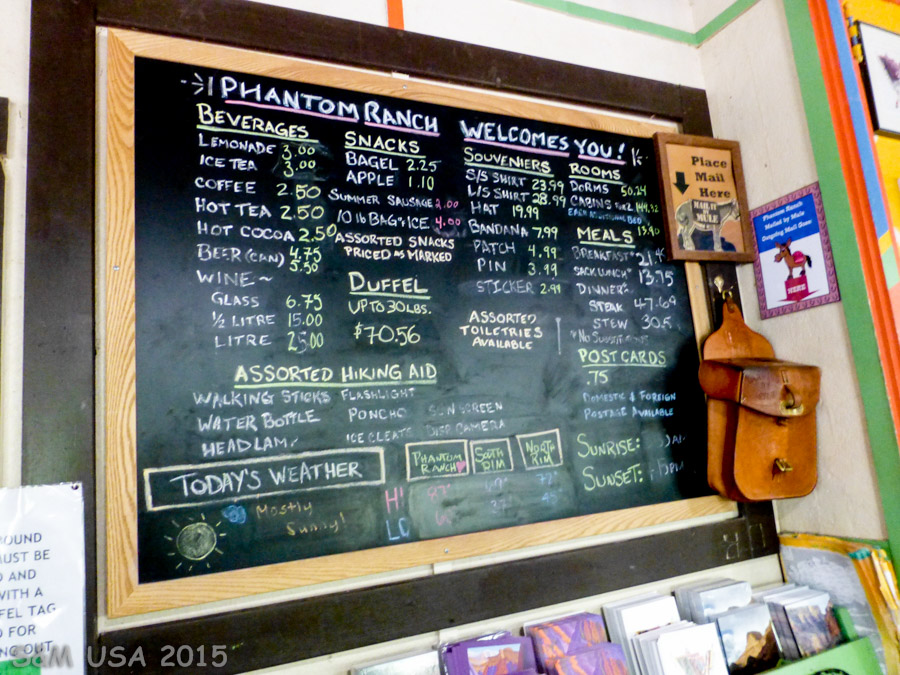 PHANTOM RANCH WELCOMES YOU!
BEVERAGES
LEMONADE 3.00
ICE TEA 3.00
COFFEE 2.50
HOT TEA 2.50
HOT COCOA 2.50
BEER (CAN) 4.75
5.50
WINE~
GLASS 6.75
1/2 LITRE 15.00
LITRE 25.00
SNACKS
BAGEL 2.25
APPLE 1.10
SUMMER SAUSAGE 2.00
10 lb BAG ICE 4.00
ASSORTED SNACKS
PRICED AS MARKED
DUFFEL
UP TO 30 LBS.
$70.56
SOUVENIERS
S/S SHIRT 23.99
L/S SHIRT 28.99
HAT 19.99
BANDANA 7.99
PATCH 4.99
PIN 3.99
STICKER 2.99
ASSORTED
TOILETRIES
AVAILABLE
ROOMS
DORMS 50.24
CABINS
EACH ADDITIONAL BED
13.90
MEALS
BREAKFAST
SACK LUNCH 13.75
DINNER
STEAK 47.69
STEW 30.5
*NO
POST CARDS
.75
DOMESTIC & FOREIGN
POSTAGE AVAILABLE
SUNRISE:
SUNSET:
ASSORTED HIKING AID
WALKING STICKS FLASHLIGHT
WATER BOTTLE PONCHO SUN SCREEN
HEADLAMP ICE CLEATS DISP. CAMERA
TODAY'S WEATHER
PHANTOM RANCH
SOUTH RIM
NORTH RIM
HI
LO
Mostly
Sunny!
Place
Mail
Here
MAIL IT
by MULE
Phantom Ranch
Mailed by Mule
Outgoing Mail Goes
HERE
OUND
MUST BE
D AND
WITH A
FEL TAG
D FOR
NG OUT
S&M USA 2015